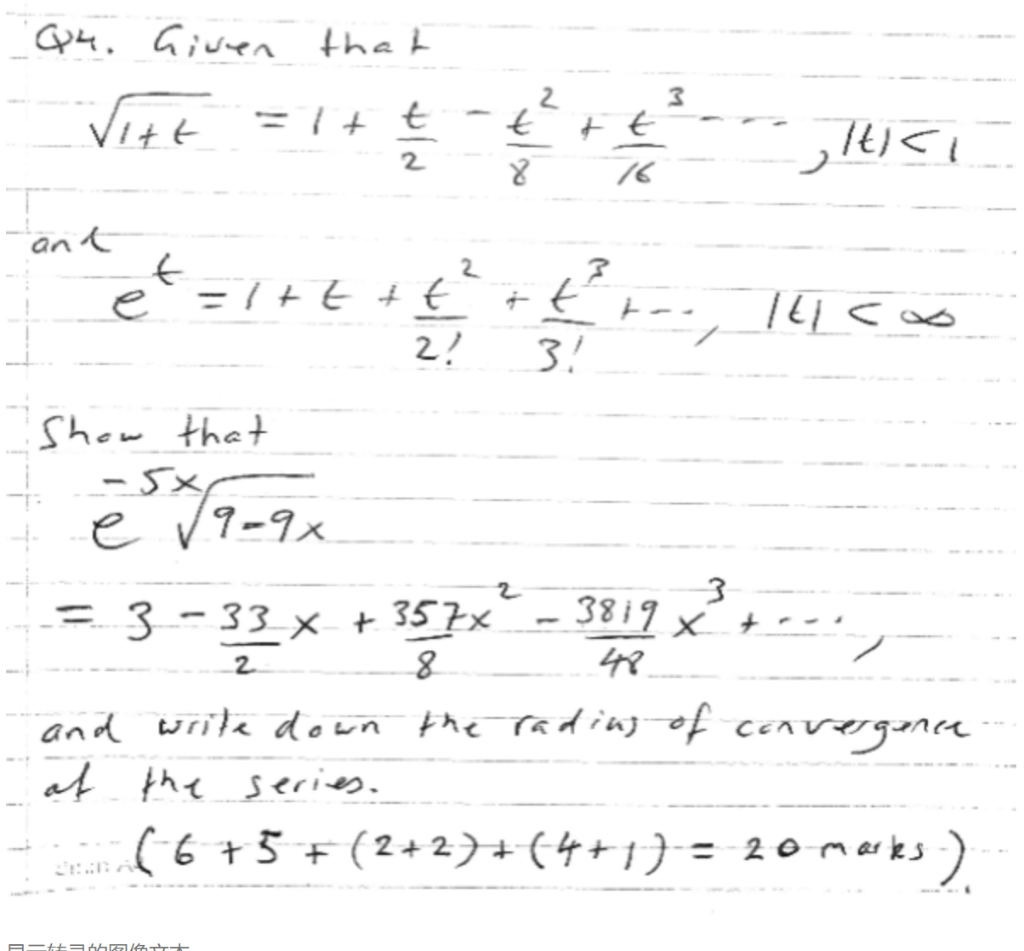 Q4. Given that
√1+t = 1 + t/2 - t²/8 + t³/16 - ... , |t| < 1
and
e^t = 1 + t + t²/2! + t³/3! + ..., |t| < ∞
Show that
e^-5x √9-9x
= 3 - 33/2 x + 357/8 x² - 3819/48 x³ + ... ,
and write down the radius of convergence
of the series.
(6 + 5 + (2+2) + (4+1) = 20 marks).